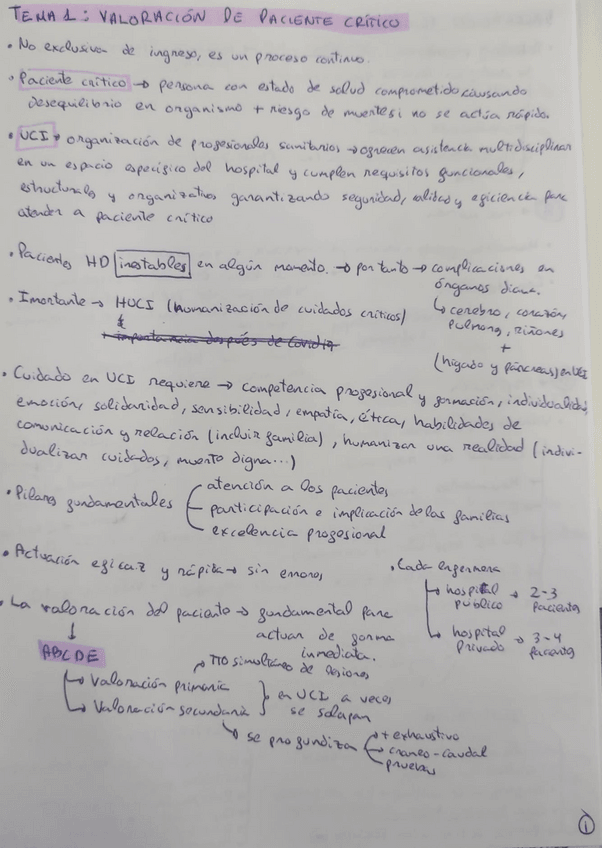 TEMA 1: VALORACIÓN DE PACIENTE CRÍTICO
• No exclusiva de ingreso, es un proceso continuo.
• Paciente crítico → persona con estado de salud comprometido causando
desequilibrio en organismo + riesgo de muerte si no se actúa rápido.
• UCI → organización de profesionales sanitarios → ofrecen asistencia multidisciplinar
en un espacio específico del hospital y cumplen requisitos funcionales,
estructurales y organizativos garantizando seguridad, calidad y eficiencia para
atender a paciente crítico
• Pacientes HD inestables en algún momento. → por tanto → complicaciones en
órganos diana.
↳ cerebro, corazón,
pulmones, riñones
+
(hígado y páncreas) en UCI
• Imortante → HUCI (humanización de cuidados críticos)
importancia después de covid19
• Cuidado en UCI requiere → competencia profesional y formación, individualidad,
emoción, solidaridad, sensibilidad, empatía, ética, habilidades de
comunicación y relación (incluir familia), humanizar una realidad (indivi-
dualizar cuidados, muerte digna...)
• Pilares fundamentales
atención a los pacientes
participación e implicación de las familias
excelencia profesional
• Actuación eficaz y rápita → sin errores
• Cada enfermera
↳ hospital público → 2-3 pacientes
↳ hospital privado → 3-4 pacientes
• La valoración del paciente → fundamental para
actuar de forma
inmediata.
↓
ABCDE
→ TTO simultáneo de lesiones
↳ Valoración primaria
↳ Valoración secundaria
} en UCI a veces
se solapan
↳ se profundiza
+ exhaustivo
craneo-caudal
pruebas
1